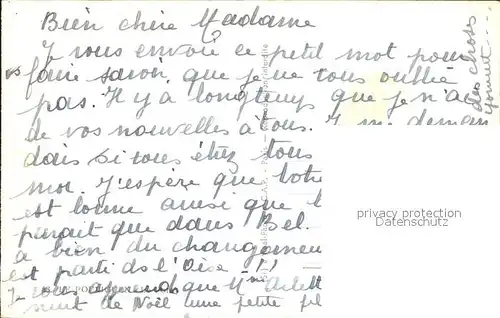 Bien chère Madame
Je vous envoie ce petit mot pour
vs faire savoir, que je ne vous oublie
pas. Il y a longtemps que je n'ai
de vos nouvelles à tous. Je me deman
dais si vous étiez tous
mor. J'espère que votre
est bonne ainsi que l
parait que dans Bel.
a bien du changemen
est partids l'oise !!
Je vous apprends que Mme Arlett
nuit de Noël une petite fil
des choses
privacy protection
Datenschutz